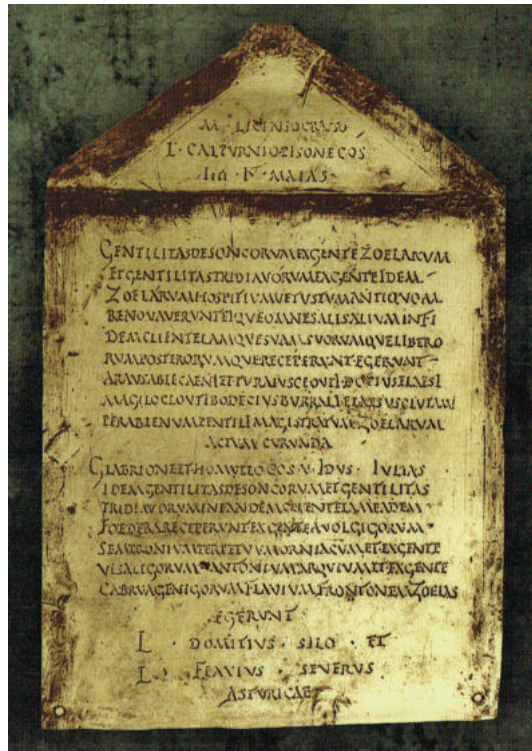 M · LICINIO CRASSO
L · CALPVRNIO PISONE COS
IIII · K · MAIAS
GENTILITAS DESONCORVM EX GENTE ZOELARVM
ET GENTILITAS TRIDIAVORVM EX GENTE IDEM
ZOELARVM HOSPITIVM VETVSTVM ANTIQVOM
RENOVAVERVNT EIQVE OMNES ALIS ALIVM IN FI
DEM CLIENTELAMQVE SVAM SVORVMQVE LIBERO
RVM POSTERORVMQVE RECEPERVNT · EGERVNT
ARAVSA BLECAENI ET TVRAIVS CLOVTI · DOCIVS ELAESI
MAGILO CLOVTI BODECIVS BVRRALI ELAESVS CLVTAMI
PER ABIENVM PENTILI MAGISTRATVM ZOELARVM
ACTVM CVRVNDA
GLABRIONE ET HOMVLLO COS · V · IDVS · IVLIAS
IDEM GENTILITAS DESONCORVM ET GENTILITAS
TRIDIAVORVM IN EANDEM CLIENTELAM EADEM
FOEDERA RECEPERVNT EX GENTE AVOLGIGORVM
SEMPRONIVM PERPETVVM ORNIACVM ET EX GENTE
VISALIGORVM ANTONIVM ARQVIVM ET EX GENTE
CABRVAGENIGORVM FLAVIVM FRONTONEM ZOELAS
EGERVNT
L · DOMITIVS · SILO · ET
L · FLAVIVS · SEVERVS
ASTVRICAE